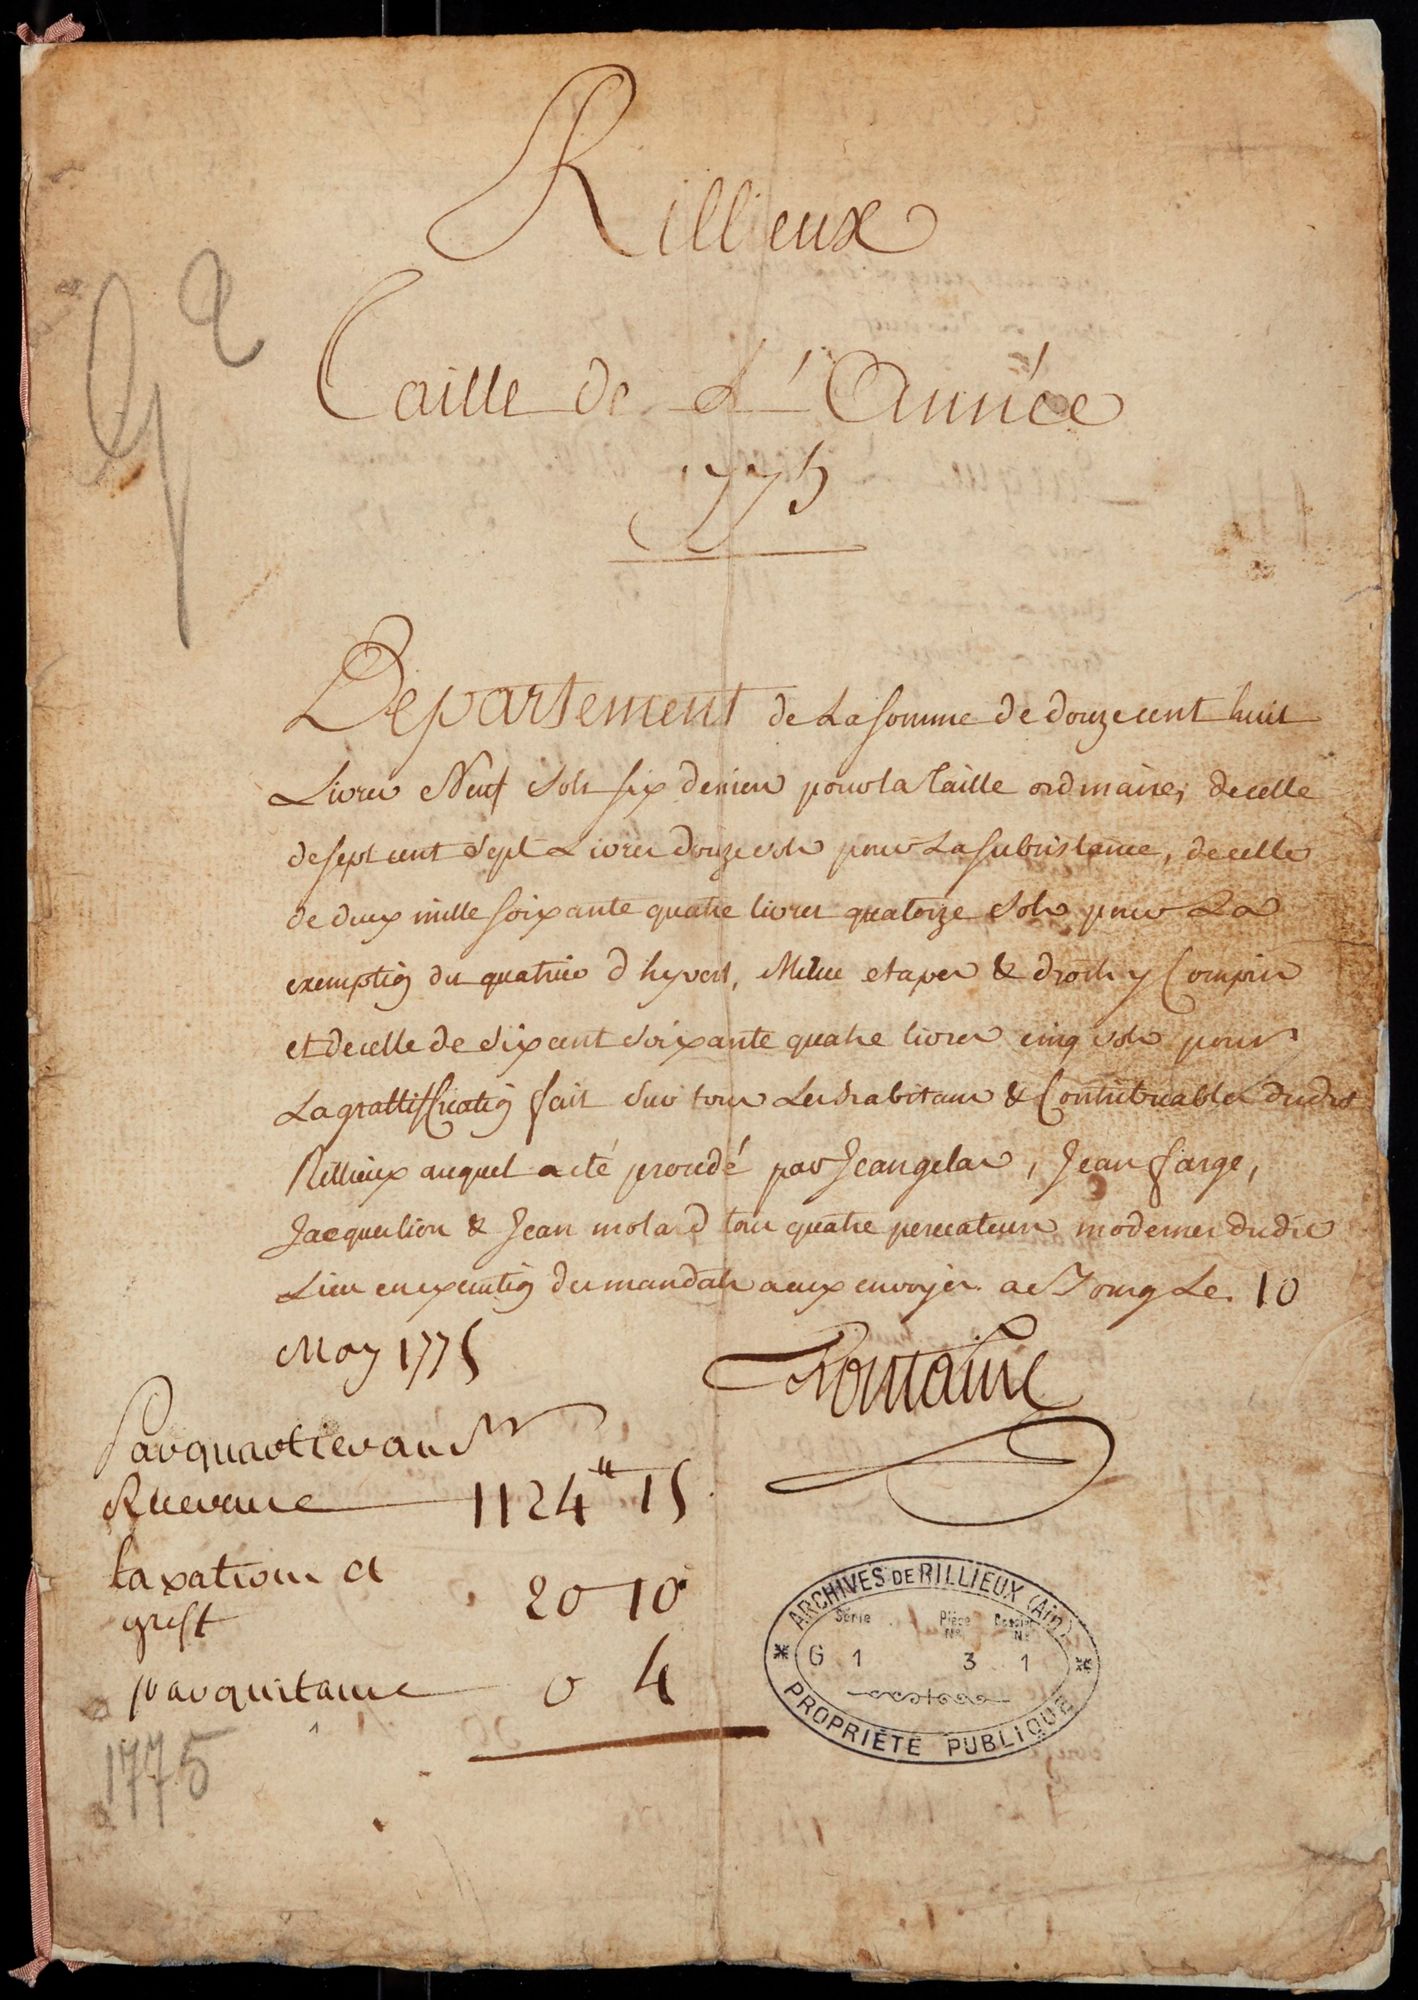 Rillieux
Taille de L'Année
1775
Departement de La somme de douze cent huit
Livres Neuf sols six deniers pour la Taille ordinaire, de celle
de sept cent sept Livres douze sols pour La subsistance, de celle
de deux mille soixante quatre livres quatorze sols pour La
exemption du quartier d'hyvert, Milice etapes & droits y Compris
et de celle de six cent soixante quatre livres cinq sols pour
La grattiffication fait sur tous Les habitans & Contribuables dudit
Rillieux auquel a eté procedé par Jean gelas, Jean farge,
Jacques lion & Jean molard tous quatre perecateurs modernes dudit
Lieu en execution des mandats a eux envoyés. a Bourg Le. 10
May 1775
Fontaine
Par quartier au Sr
Receveur 1124tt 15
taxations et
greff 20 10
par quitance 0 4
1775
ARCHIVES DE RILLIEUX (Ain)
Série Pièce No Dossier No
G 1 3 1
PROPRIÉTÉ PUBLIQUE